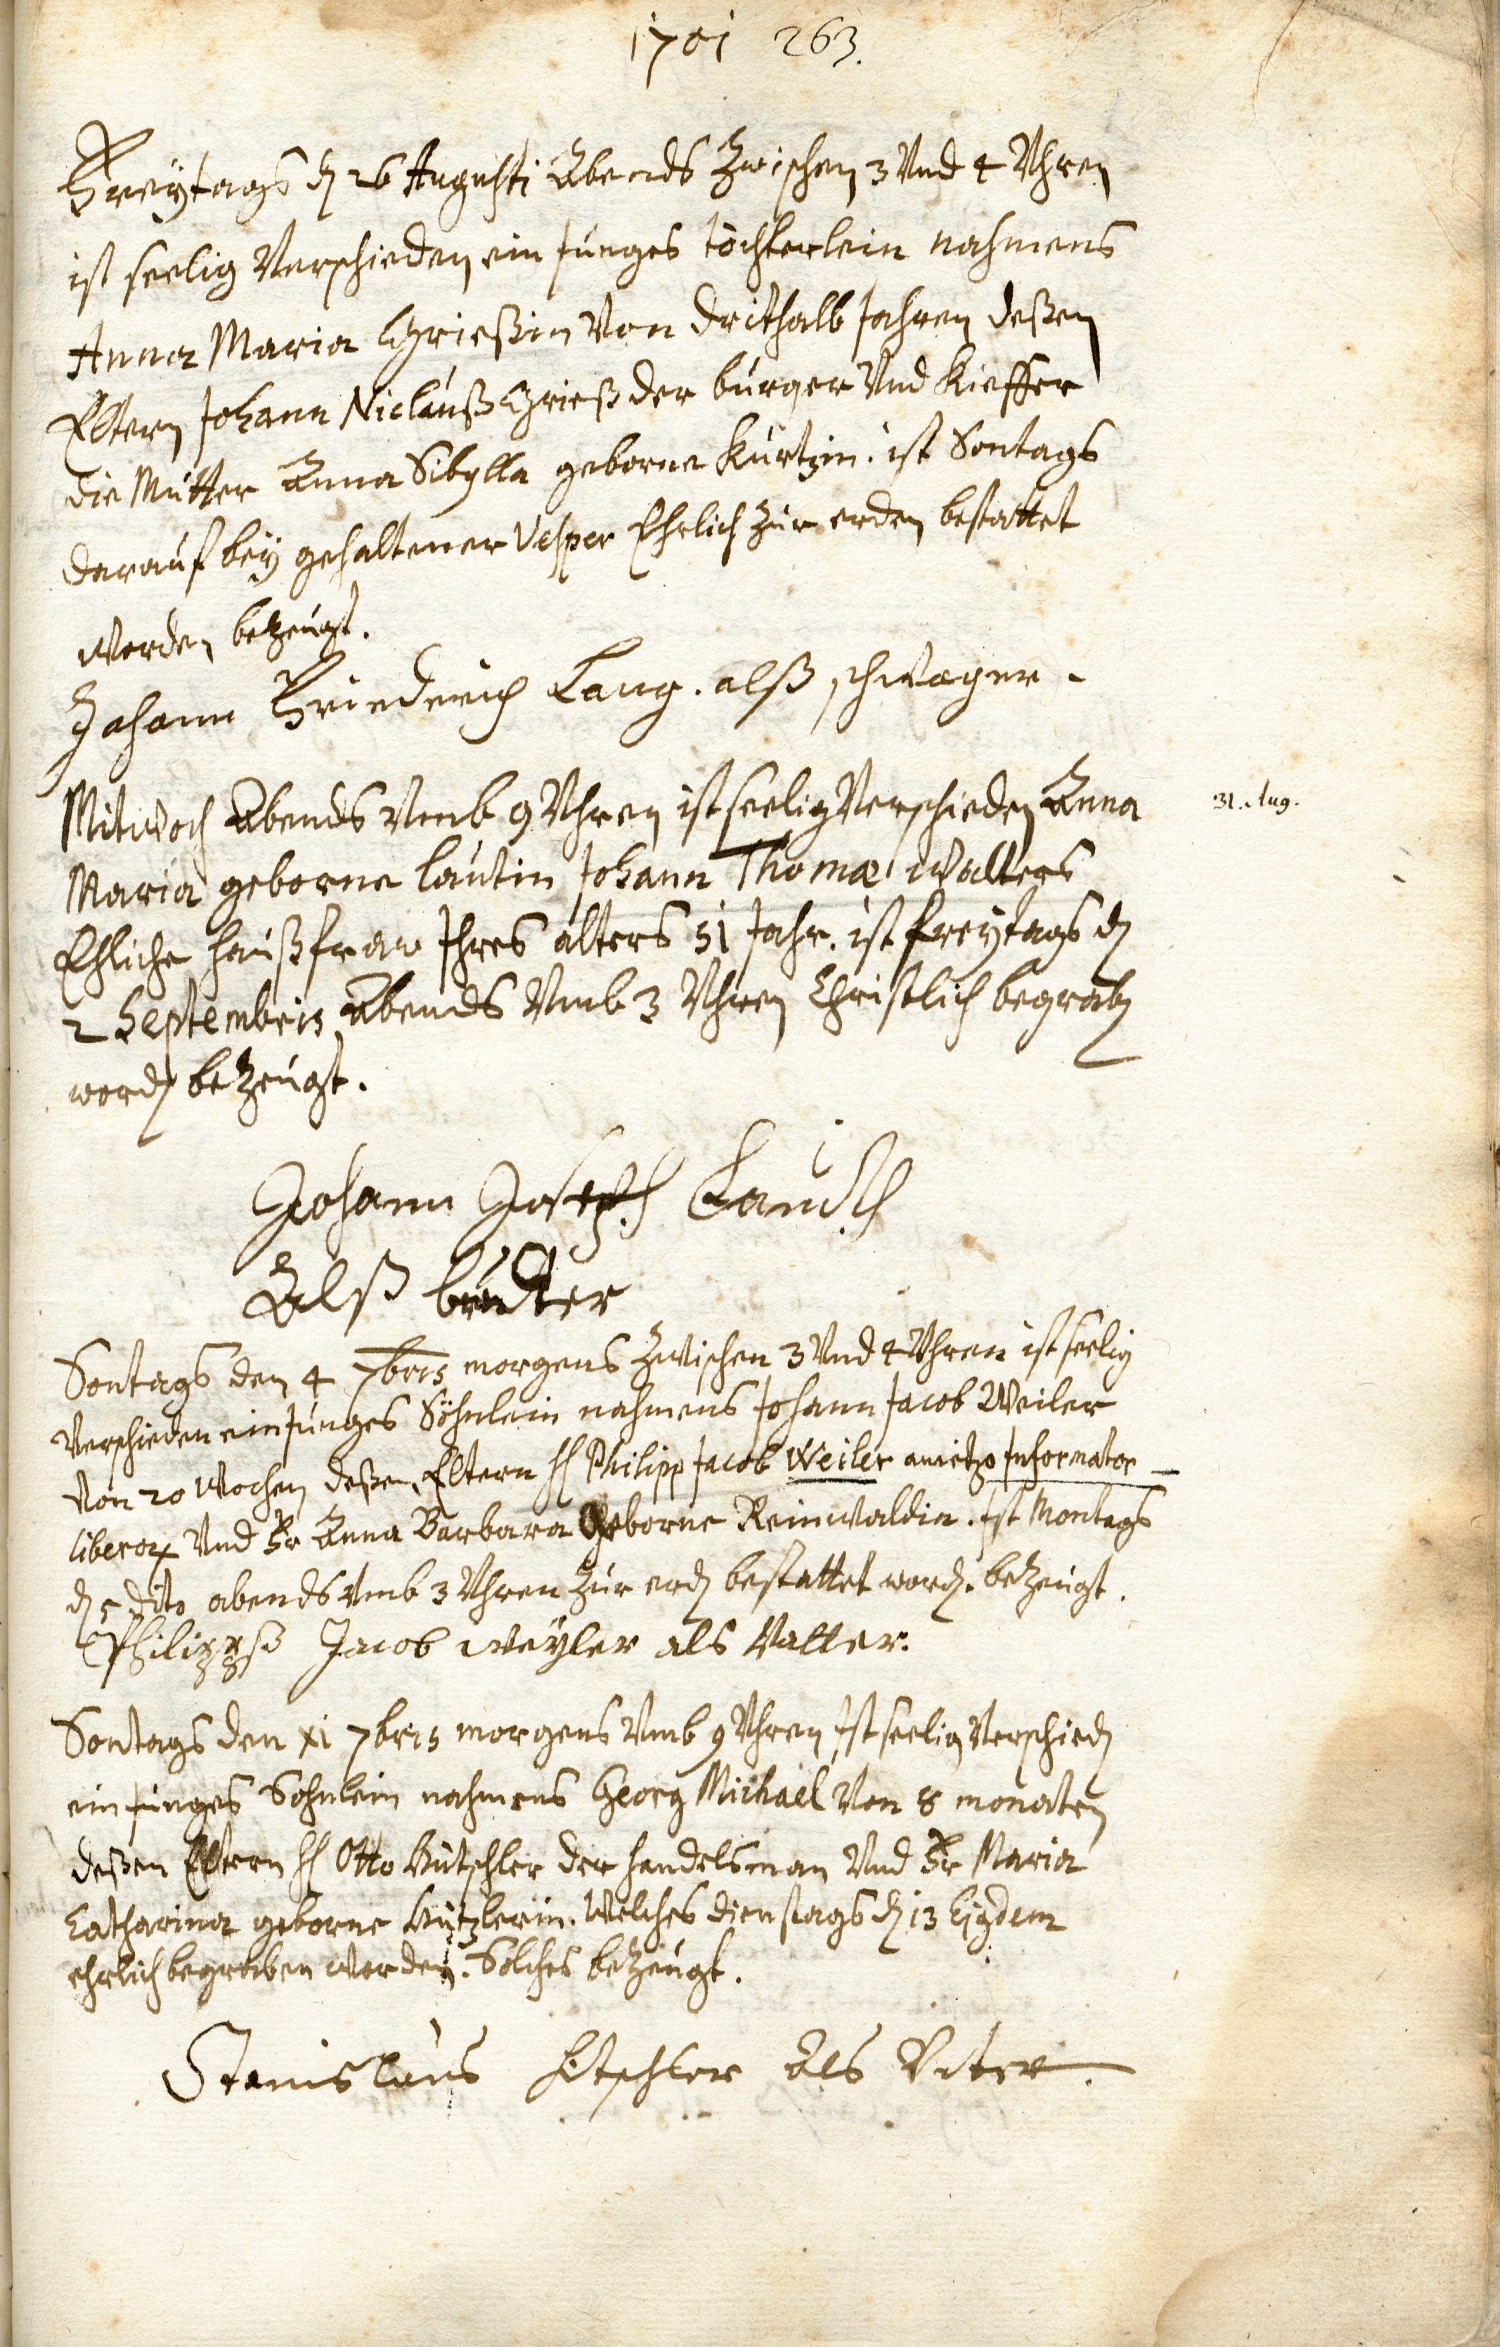 1701 263.
Freÿtags dẽ 26 Augusti Abends Zwischen 3 Vnd 4 Vhren
ist seelig Verschieden ein Junges töchterlein nahmens
Anna Maria Grießin Von drithalb Jahren deßen
Eltern Johann Niclauß Grieß der burger Vnd Kieffer
die Mutter Anna Sibylla geborne Kurtzin. ist Sontags
darauf beÿ gehaltener Vesper Ehrlich zur erden bestattet
worden bezeugt.
Johann Friederich Lang. alß schwager.
Mitwoch Abends Vmb 9 Vhren ist seelig Verschieden Anna
31. Aug.
Maria geborne lautin Johann Thomæ Walters
Ehliche haußfraw Ihres alters 51 Jahr. ist freÿtags dẽ
2 Septembris Abends Vmb 3 Vhren Christlich begrabẽ
wordẽ bezeugt.
Johann Joseph Laudh
Alß bruder
Sontags den 4 7bris morgens Zwischen 3 Vnd 4 Vhren ist seelig
Verschieden ein Junges Söhnlein nahmens Johann Jacob Weiler
Von 20 Wochen deßen Eltern H Philipp Jacob Weiler anietzo Informator
liberoꝝ Vnd Fr Anna Barbara Geborne Reinwaldin. Ist Montags
dẽ 5 dito abends Vmb 3 Vhren zur erdẽ bestattet wordẽ. bezeugt.
Philippß Jacob weÿler als Vatter.
Sontags den xi 7bris morgens Vmb 9 Vhren Ist seelig Verschiedẽ
ein Junges Sohnlein nahmens Georg Michael Von 8 monaten
deßen Eltern H Otto Kütschler der handelsman Vnd Fr Maria
Catharina geborne Kützlerin. Welches dienstags dẽ 13 Ejgdem
ehrlich begraben worden. Solches bezeugt.
Stanislaus Als